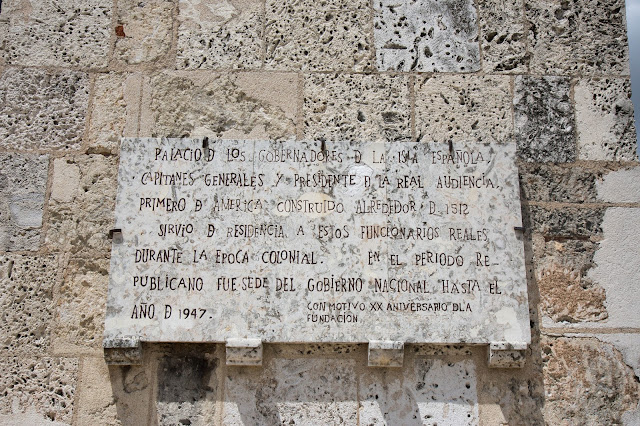 PALACIO D LOS GOBERNADORES D LA ISLA ESPAÑOLA,
CAPITANES GENERALES Y PRESIDENTE D LA REAL AUDIENCIA.
PRIMERO D AMERICA CONSTRUIDO ALREDEDOR D 1512
SIRVIO D RESIDENCIA A ESTOS FUNCIONARIOS REALES
DURANTE LA EPOCA COLONIAL. EN EL PERIODO RE-
PUBLICANO FUE SEDE DEL GOBIERNO NACIONAL HASTA EL
AÑO D 1947.
CON MOTIVO XX ANIVERSARIO DLA
FUNDACIÓN